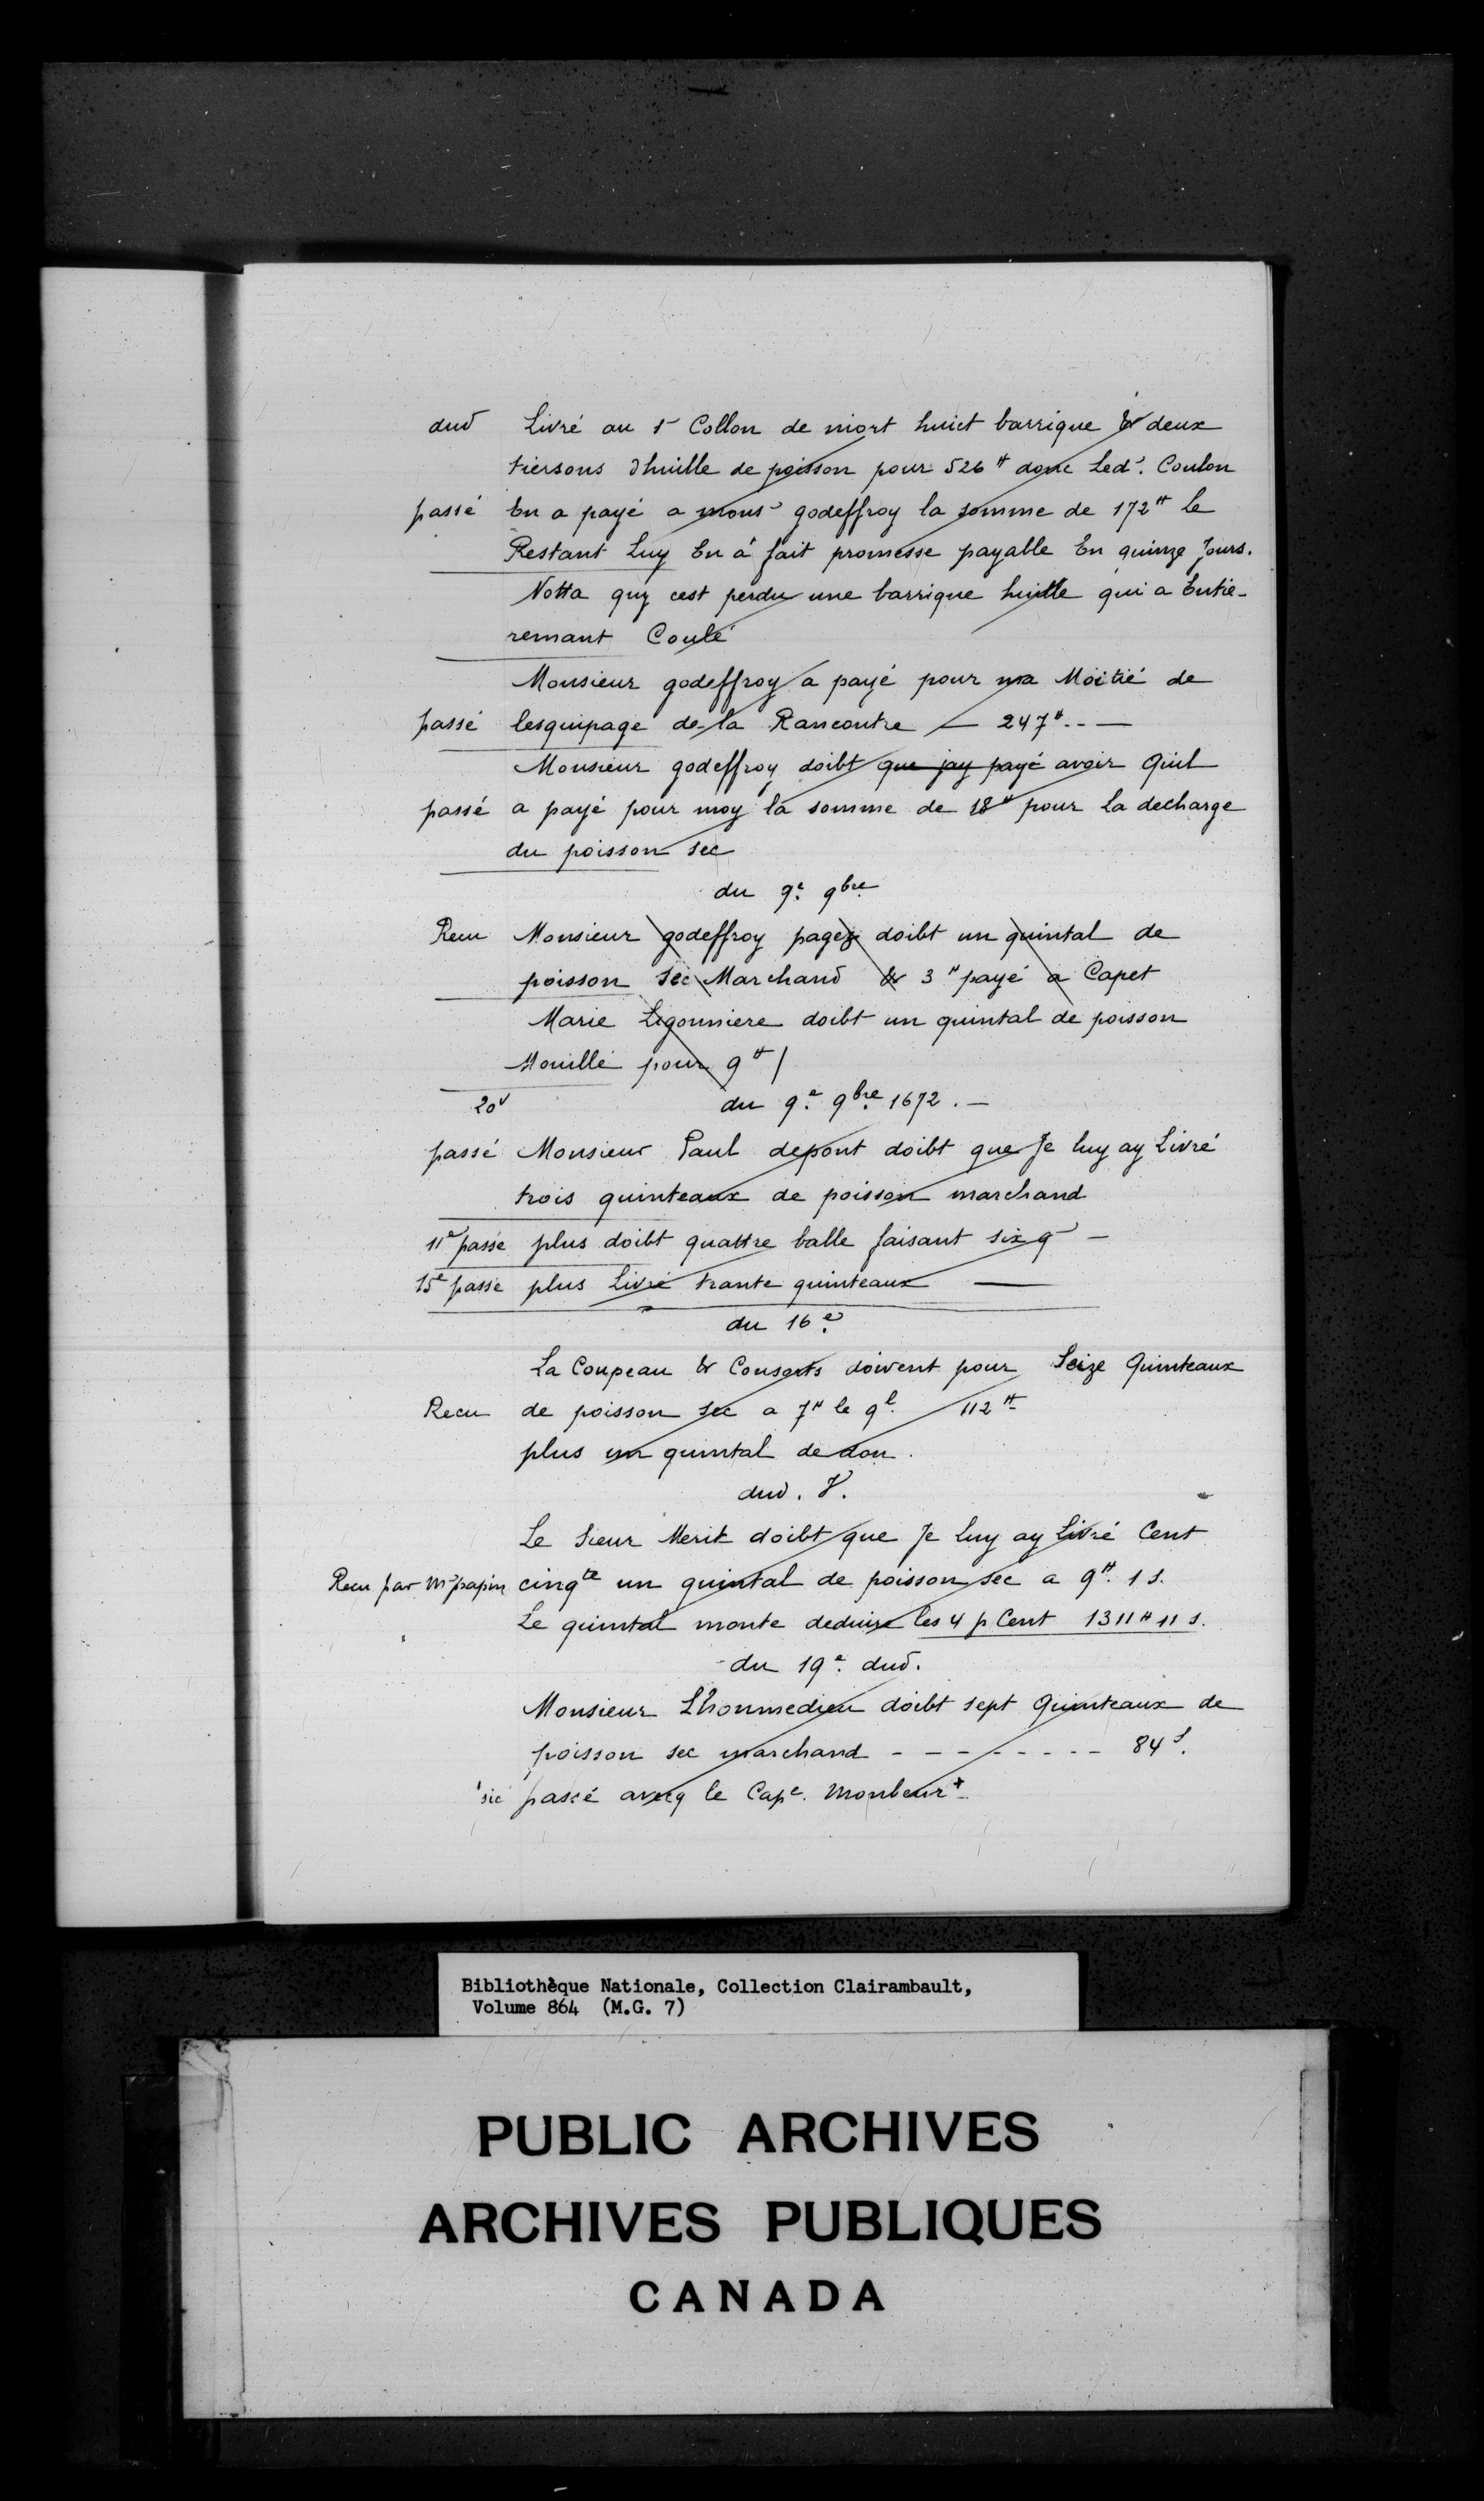 dud Livré au sr Collon de niort huict barrique & deux
tiersons d'huille de poisson pour 526# donc Ledr. Coulon
passé En a payé a monsr godeffroy la somme de 172# le
Restant Luy En à fait promesse payable En quinze Jours.
Notta quy cest perdu une barrique huille qui a Entie-
remant Coulé
Monsieur godeffroy a payé pour ma Moitié de
passé lesquipage de la Rancontre — 247#.. —
Monsieur godeffroy doibt que jay payé avoir Quil
passé a payé pour moy la somme de 18# pour la decharge
du poisson sec
du 9e. 9bre
Recu Monsieur godeffroy pagez doibt un quintal de
poisson sec Marchand & 3# payé a Capet
Marie Ligonniere doibt un quintal de poisson
Mouillé pour 9# /
20v du 9e. 9bre. 1672. —
passé Monsieur Paul depont doibt que Je luy ay Livré
trois quinteaux de poisson marchand
11e passé plus doibt quattre balle faisant six q —
15e passé plus Livré trante quinteaux —
du 16e.
La Coupeau & Consorts doivent pour Seize Quinteaux
Recu de poisson sec a 7# le ql. 112#
plus un quintal de don.
dud. V.
Le Sieur Merit doibt que Je luy ay Livré Cent
Recu par Mr papin cinqte un quintal de poisson sec a 9#. 1 s.
Le quintal monte deduire les 4 p Cent 1311# 11 s.
du 19e. dud.
Monsieur Lhonmedieu doibt sept Quinteaux de
poisson sec marchand - - - - - - - - 84 s.
'sic passé avecq le Cape. Monbeur+
Bibliothèque Nationale, Collection Clairambault,
Volume 864 (M.G. 7)
PUBLIC ARCHIVES
ARCHIVES PUBLIQUES
CANADA